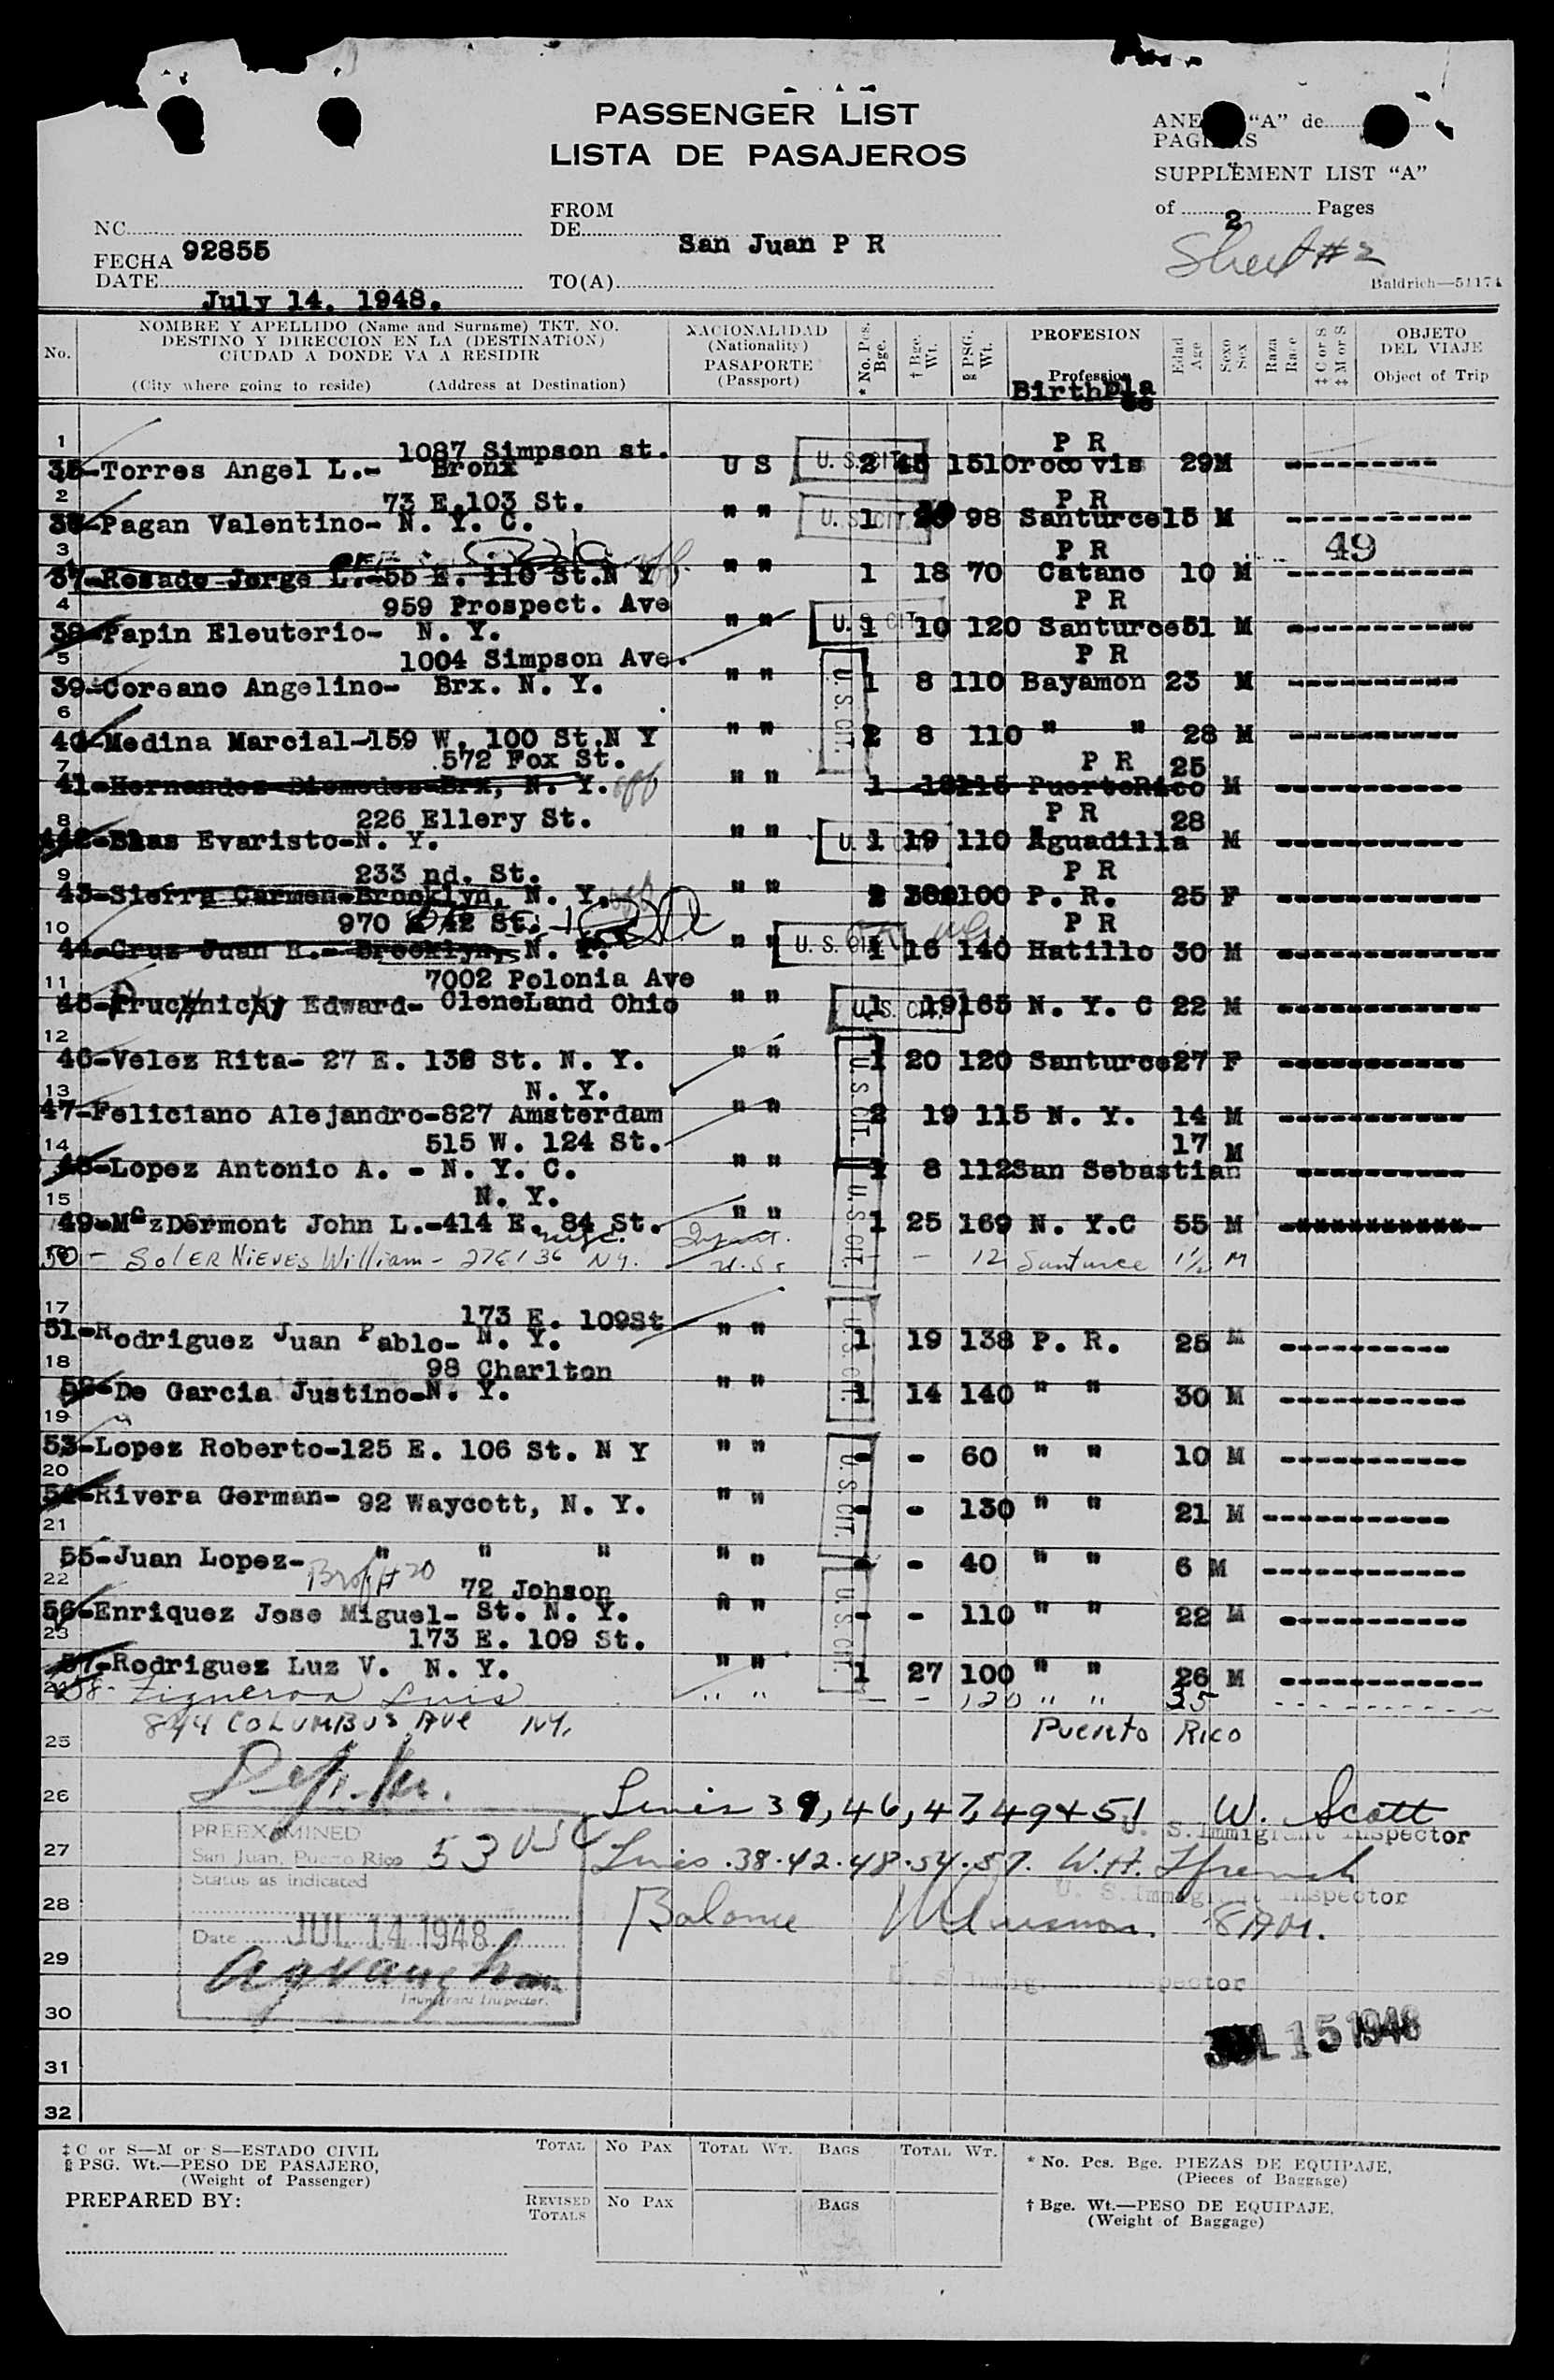 PASSENGER LIST
LISTA DE PASAJEROS
"A" de
SUPPLEMENT LIST "A"
of 2 Pages
Sheet # 2
Baldrich—51174
NC. 92855
FROM
DE San Juan P R
FECHA
DATE July 14, 1948.
TO(A)
No.
NOMBRE Y APELLIDO (Name and Surname) TKT. NO.
DESTINO Y DIRECCION EN LA (DESTINATION)
CIUDAD A DONDE VA A RESIDIR
(City where going to reside) (Address at Destination)
NACIONALIDAD
(Nationality)
PASAPORTE
(Passport)
* No. Pcs. Bge.
† Bge. Wt.
PSG. Wt.
PROFESION
Profession
Birthpla
ce
Edad
Age
Sexo
Sex
Raza
Race
‡ C or S
‡ M or S
OBJETO
DEL VIAJE
Object of Trip
1 1087 Simpson st. P R
35-Torres Angel L.- Bronx U S U. S. CIT. 2 45 151 Orocovis 29 M ---------
2 73 E.103 St. P R
36-Pagan Valentino- N. Y. C. " " U. S. CIT. 1 98 Santurce 15 M -----------
3 P R 49
37-Rosado Jorge L.-55 E. 110 St.N Y off " " 1 18 70 Catano 10 M -----------
4 959 Prospect. Ave P R
38-Papin Eleuterio- N. Y. " " U. S. CIT. 1 10 120 Santurce 51 M -----------
5 1004 Simpson Ave. P R
39-Corsano Angelino- Brx. N. Y. " " U. S. CIT. 1 8 110 Bayamon 23 M ----------
6
40-Medina Marcial-159 W. 100 St.N Y " " 2 8 110 " " 28 M ----------
7 572 Fox St. P R 25
41-Hernandez Diomedes-Brx, N. Y. off " " 1 18 115 PuertoRico M -----------
8 226 Ellery St. P R 28
42-Blas Evaristo-N. Y. " " U. S. CIT. 1 19 110 Aguadilla M -----------
9 233 nd. St. P R
43-Sierra Carmen-Brooklyn, N. Y. off " " 2 100 P. R. 25 F ------------
10 970 42 St. P R
44-Cruz Juan R.- Brooklyn, N. Y. " " U. S. CIT. 1 16 140 Hatillo 30 M -------------
11 7002 Polonia Ave
45- Edward- CleneLand Ohio " " U. S. CIT. 1 19 165 N. Y. C 22 M ------------
12
46-Velez Rita- 27 E. 138 St. N. Y. " " U. S. CIT. 1 20 120 Santurce 27 F ------------
13 N. Y.
47-Feliciano Alejandro-827 Amsterdam " " 2 19 115 N. Y. 14 M -----------
14 515 W. 124 St. 17 M
48-Lopez Antonio A. - N. Y. C. " " 1 8 112 San Sebastian ----------
15 N. Y.
49-McDermont John L.-414 E. 84 St. " " U. S. CIT. 1 25 169 N. Y.C 55 M ------------
50 - SOLER NIEVES William - 27 E 136 NY. Infant. U.S. - 12 Santurce 1½ M
17 173 E. 109St
51-Rodriguez Juan Pablo- N. Y. " " U. S. CIT. 1 19 138 P. R. 25 M ----------
18 98 Charlton
52-De Garcia Justino-N. Y. " " 1 14 140 " " 30 M -----------
19
53-Lopez Roberto-125 E. 106 St. N Y " " U. S. CIT. - - 60 " " 10 M -----------
20
54-Rivera German- 92 Waycott, N. Y. " " - - 130 " " 21 M -----------
21
55-Juan Lopez- " " " Bro # 20 " " - - 40 " " 6 M ------------
22 72 Johson
56-Enriquez Jose Miguel- St. N. Y. " " U. S. CIT. - - 110 " " 22 M -----------
23 173 E. 109 St.
57-Rodriguez Luz V. N. Y. " " 1 27 100 " " 26 M -----------
24 58- Figueroa Luis " " - - 120 " " 35 - - - - - -
844 COLUMBUS AVE NY. Puerto Rico
25
26 Lines 39, 46, 47, 49 & 51 W. Scott
U. S. Immigrant Inspector
PREEXAMINED
San Juan, Puerto Rico 53 USC
27 Lines .38.42.48.54.57. W.H.
Status as indicated
U. S. Immigrant Inspector
28 Balance
Date JUL 14 1948
29
U. S. Immigrant Inspector
Immigrant Inspector.
30
JUL 15 1948
31
32
‡ C or S—M or S—ESTADO CIVIL
PSG. Wt.—PESO DE PASAJERO,
(Weight of Passenger)
PREPARED BY:
TOTAL NO PAX TOTAL WT. BAGS TOTAL WT.
REVISED TOTALS NO PAX BAGS
* No. Pcs. Bge. PIEZAS DE EQUIPAJE,
(Pieces of Baggage)
† Bge. Wt.—PESO DE EQUIPAJE,
(Weight of Baggage)